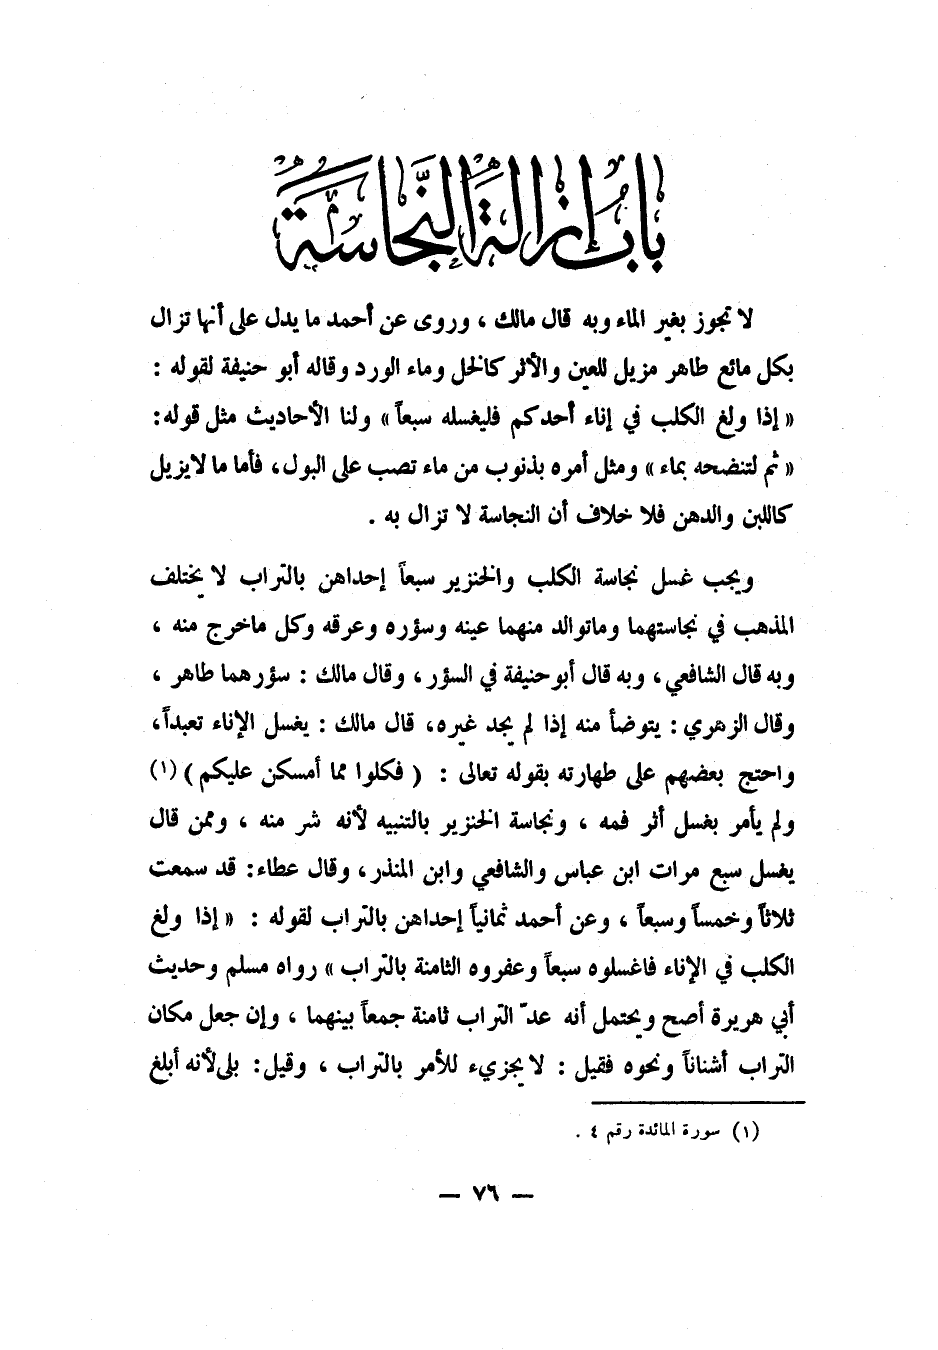 باب إزالة النجاسة
لا تجوز بغير الماء وبه قال مالك ، وروى عن أحمد ما يدل على أنها تزال
بكل مائع طاهر مزيل للعين والأثر كالخل وماء الورد وقاله أبو حنيفة لقوله :
« إذا ولغ الكلب في إناء أحدكم فليغسله سبعاً » ولنا الأحاديث مثل قوله :
« ثم لتنضحه بماء » ومثل أمره بذنوب من ماء تصب على البول ، فأما ما لا يزيل
كاللبن والدهن فلا خلاف أن النجاسة لا تزال به .
ويجب غسل نجاسة الكلب والخنزير سبعاً إحداهن بالتراب لا يختلف
المذهب في نجاستهما وماتوالد منهما عينه وسؤره وعرقه وكل ماخرج منه ،
وبه قال الشافعي ، وبه قال أبو حنيفة في السؤر ، وقال مالك : سؤرهما طاهر ،
وقال الزهري : يتوضأ منه إذا لم يجد غيره ، قال مالك : يغسل الإناء تعبداً ،
واحتج بعضهم على طهارته بقوله تعالى : ( فكلوا مما أمسكن عليكم ) (١)
ولم يأمر بغسل أثر فمه ، ونجاسة الخنزير بالتنبيه لأنه شر منه ، وممن قال
يغسل سبع مرات ابن عباس والشافعي وابن المنذر ، وقال عطاء : قد سمعت
ثلاثاً وخمساً وسبعاً ، وعن أحمد ثمانياً إحداهن بالتراب لقوله : « إذا ولغ
الكلب في الإناء فاغسلوه سبعاً وعفروه الثامنة بالتراب » رواه مسلم وحديث
أبي هريرة أصح ويحتمل أنه عدّ التراب ثامنة جمعاً بينهما ، وإن جعل مكان
التراب أشناناً ونحوه فقيل : لا يجزيء للأمر بالتراب ، وقيل : بلى لأنه أبلغ
(١) سورة المائدة رقم ٤ .
— ٧٦ —